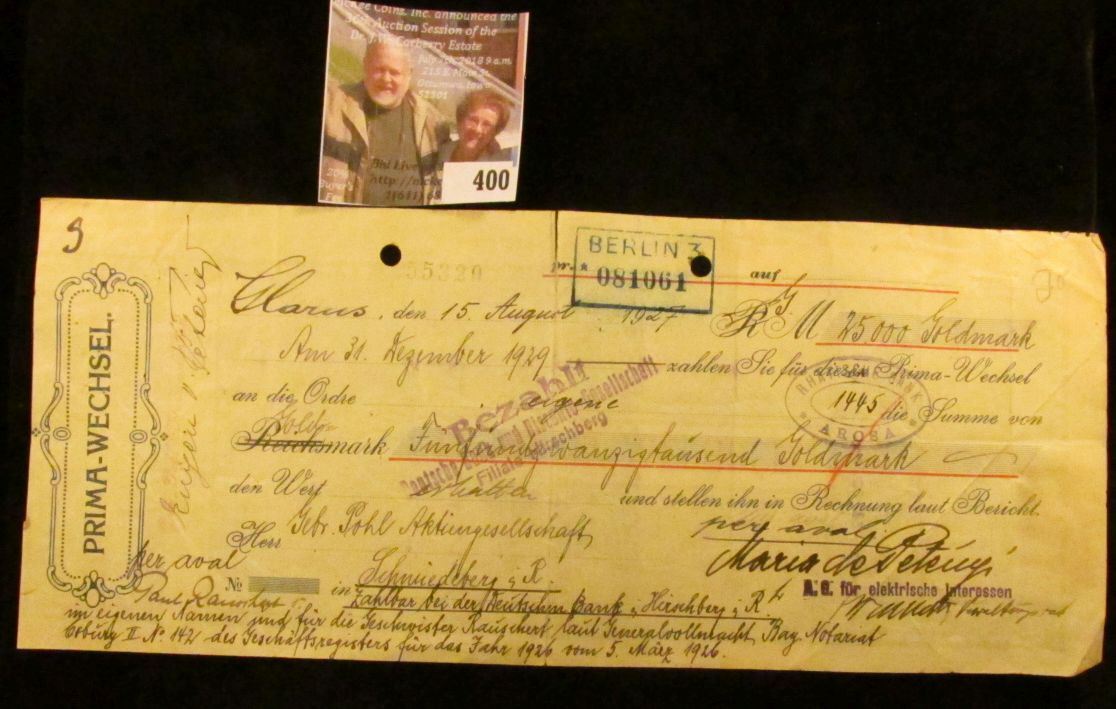 Coins, Inc. announced the
Auction Session of the
Dr. J.W. Carberry Estate
2018 9 a.m.
215 E. Main St.
Ottumwa, Iowa
52501
Bid Live
http://
400
PRIMA-WECHSEL.
55329
BERLIN 3
081061
pr. auf
Glarus, den 15. August 1927 RGM 25.000 Goldmark
Am 31. Dezember 1929 zahlen Sie für diesen Prima-Wechsel
an die Ordre eigene die Summe von
RHÄTISCHE BANK
1445
AROSA
Gold-
Reichsmark Fünfundzwanzigtausend Goldmark
Bezahlt
Deutsche Bank und Disconto-Gesellschaft
Filiale Hirschberg
den Wert erhalten und stellen ihn in Rechnung laut Bericht.
Herr Gebr. Pohl Aktiengesellschaft,
per aval
Maria de
No in Schmiedeberg i/R.
A.G. für elektrische Interessen
Zahlbar bei der Deutschen Bank, Hirschberg i/R.
per aval
Paul Rauschert
im eigenen Namen und für die Geschwister Rauschert laut Generalvollmacht, Bay. Notariat
Coburg II No 142 des Geschäftsregisters für das Jahr 1926 vom 5. März 1926.